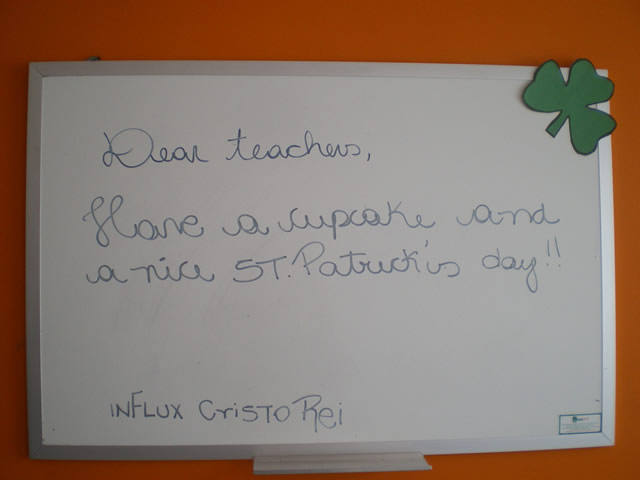 Dear teachers,
Have a cupcake and
a nice ST. Patrick's day!!
INFLUX CRISTO Rei